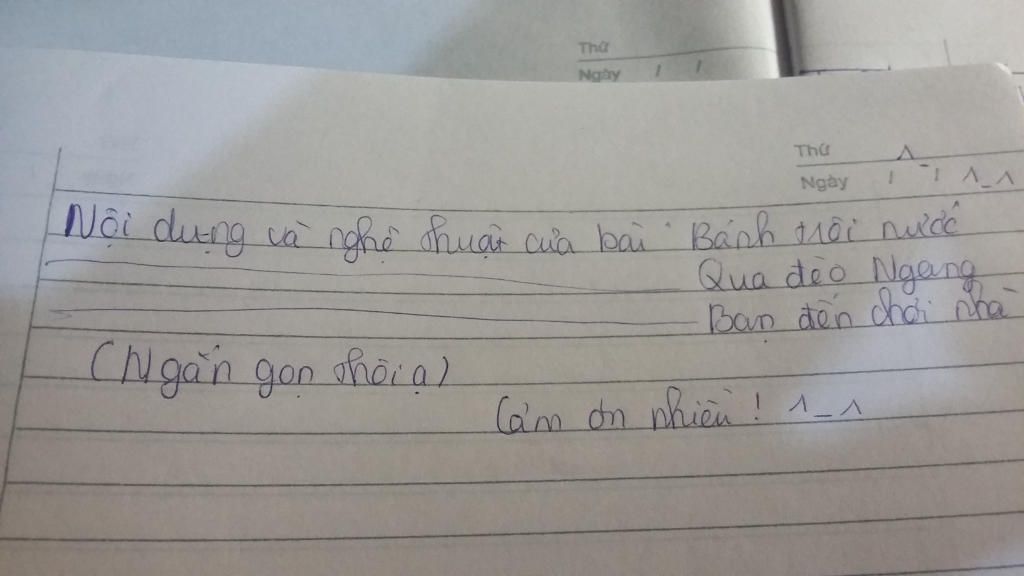 Thứ
Ngày / /
Thứ ^
Ngày / - / ^_^
Nội dung và nghệ thuật của bài: Bánh trôi nước
Qua đèo Ngang
Bạn đến chơi nhà
(Ngắn gọn thôi ạ)
Cảm ơn nhiều! ^_^